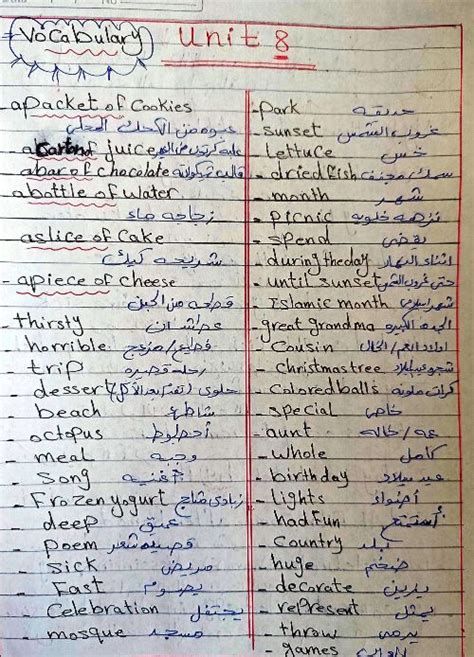 Vocabulary Unit 8
- a packet of cookies
عبوه من الكحك المحلى
- a carton of juice علبه كرتون من العصير
- a bar of chocolate قالب شيكولاته
- a bottle of water
زجاجه ماء
- a slice of cake
شريحه كيك
- a piece of cheese
قطعه من الجبن
- thirsty عطشان
- horrible فظيع/مزعج
- trip رحله قصيره
- dessert حلوى
- beach شاطئ
- octopus أخطبوط
- meal وجبه
- song أغنيه
- Frozen yogurt زبادى مثلج
- deep عميق
- poem قصيده شعر
- sick مريض
- Fast يصوم
- Celebration
- mosque مسجد
- park حديقه
- sunset غروب الشمس
- Lettuce خس
- dried fish سمك مجفف
- month شهر
- picnic نزهه خلويه
- spend يقضى
- during the day أثناء النهار
- until sunset حتى غروب الشمس
- Islamic month شهر إسلامى
- great grandma الجده الكبيره
- Cousin اولاد العم/الخال
- Christmas tree
- Colored balls كرات ملونه
- special خاص
- aunt عمه/خاله
- whole كامل
- birthday عيد ميلاد
- lights أضواء
- had Fun أستمتع
- Country بلد
- huge ضخم
- decorate يزين
- represent يمثل
- throw يرمى
- games